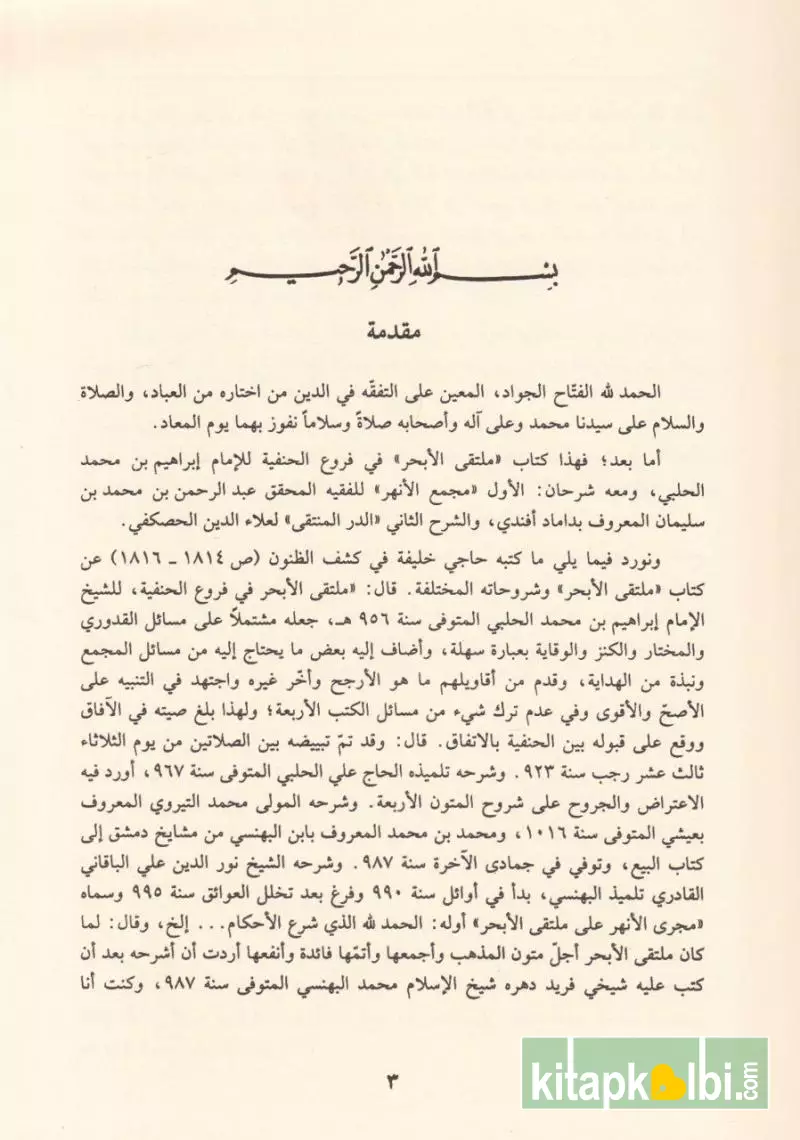 بسم الله الرحمن الرحيم
مقدمة
الحمد لله الفتّاح الجواد، المعين على التفقّه في الدين من اختاره من العباد، والصلاة
والسلام على سيدنا محمد وعلى آله وأصحابه صلاةً وسلاماً نفوز بهما يوم المعاد.
أما بعد؛ فهذا كتاب «ملتقى الأبحر» في فروع الحنفية للإمام إبراهيم بن محمد
الحلبي، ومعه شرحان: الأول «مجمع الأنهر» للفقيه المحقق عبد الرحمن بن محمد بن
سليمان المعروف بداماد أفندي، والشرح الثاني «الدر المنتقى» لعلاء الدين الحصكفي.
ونورد فيما يلي ما كتبه حاجي خليفة في كشف الظنون (ص ١٨١٤ ـ ١٨١٦) عن
كتاب «ملتقى الأبحر» وشروحاته المختلفة. قال: «ملتقى الأبحر في فروع الحنفية، للشيخ
الإمام إبراهيم بن محمد الحلبي المتوفى سنة ٩٥٦ هـ، جعله مشتملاً على مسائل القدوري
والمختار والكنز والوقاية بعبارة سهلة، وأضاف إليه بعض ما يحتاج إليه من مسائل المجمع
ونبذة من الهداية، وقدم من أقاويلهم ما هو الأرجح وأخّر غيره واجتهد في التنبيه على
الأصحّ والأقوى وفي عدم ترك شيء من مسائل الكتب الأربعة؛ ولهذا بلغ صيته في الآفاق
ووقع على قبوله بين الحنفية بالاتفاق. قال: وقد تمّ تبييضه بين الصلاتين من يوم الثلاثاء
ثالث عشر رجب سنة ٩٢٣. وشرحه تلميذه الحاج علي الحلبي المتوفى سنة ٩٦٧، أورد فيه
الاعتراض والجروح على شروح المتون الأربعة. وشرحه المولى محمد التيروي المعروف
بعيشي المتوفى سنة ١٠١٦، ومحمد بن محمد المعروف بابن البهنسي من مشايخ دمشق إلى
كتاب البيع، وتوفي في جمادى الآخرة سنة ٩٨٧. وشرحه الشيخ نور الدين علي الباقاني
القادري تلميذ البهنسي، بدأ في أوائل سنة ٩٩٠ وفرغ بعد تخلل العوائق سنة ٩٩٥ وسماه
«مجرى الأنهر على ملتقى الأبحر» أوله: الحمد لله الذي شرع الأحكام... إلخ، وقال: لما
كان ملتقى الأبحر أجلّ متون المذهب وأجمعها وأتمّها فائدة وأنفعها أردت أن أشرحه بعد أن
كتب عليه شيخي فريد دهره شيخ الإسلام محمد البهنسي المتوفى سنة ٩٨٧، وكنت أنا
٣
kitapkalbi.com